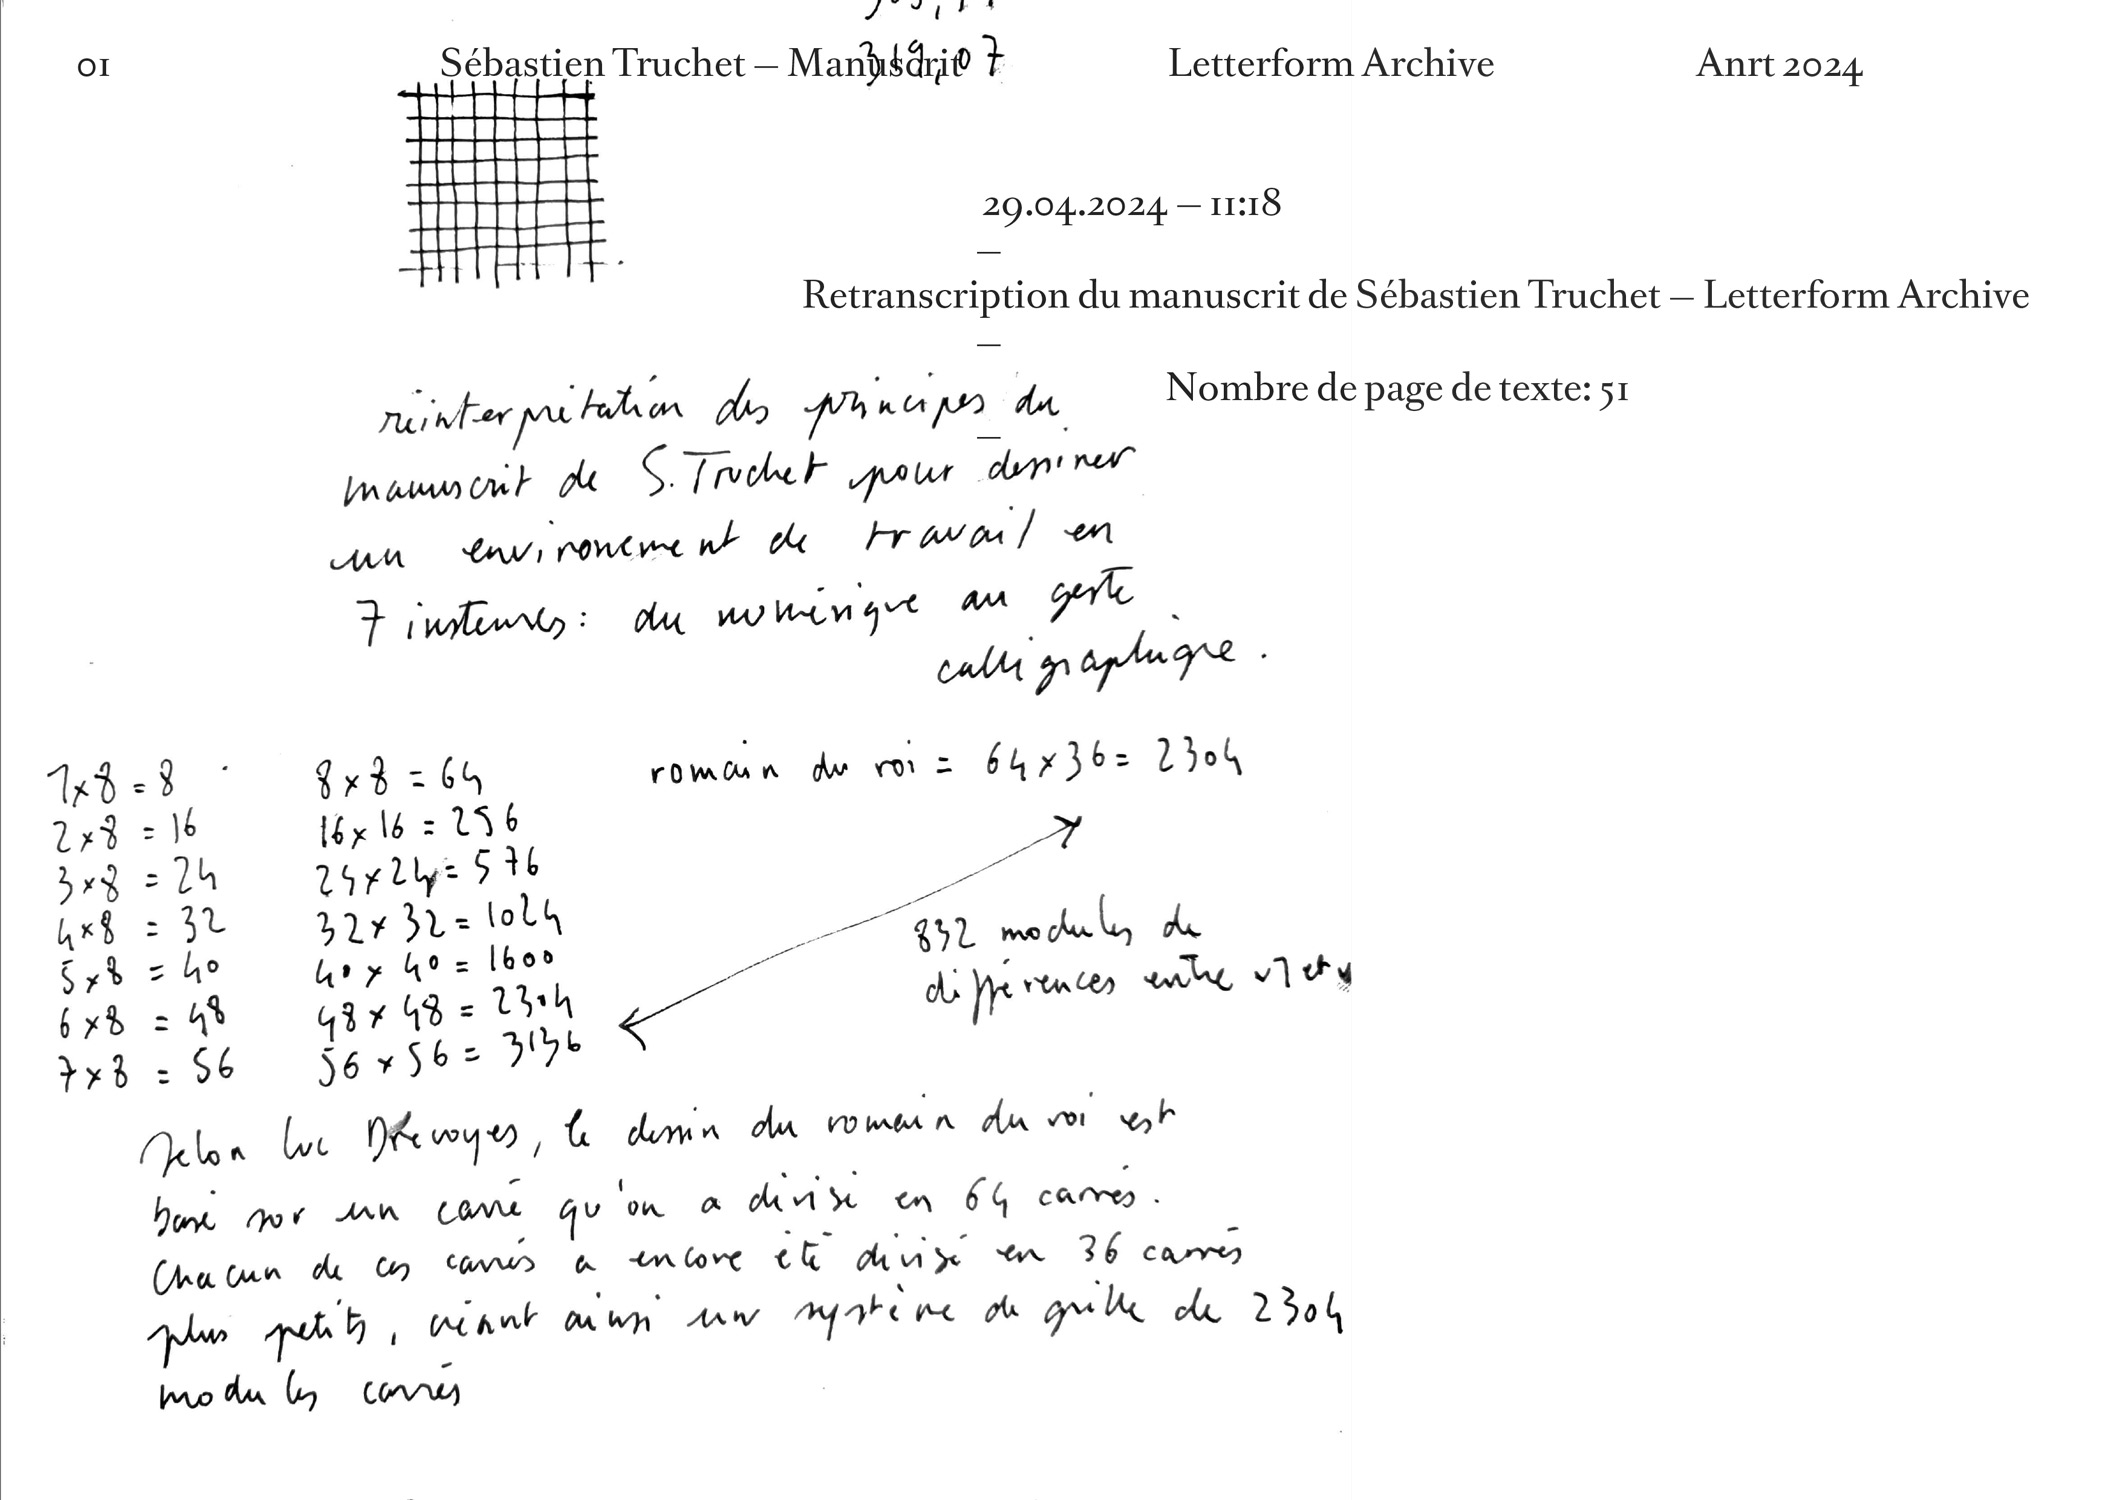 01 Sébastien Truchet – Manuscrit Letterform Archive Anrt 2024
319,07
29.04.2024 – 11:18
–
Retranscription du manuscrit de Sébastien Truchet – Letterform Archive
–
Nombre de page de texte: 51
–
réinterprétation des principes du
manuscrit de S. Truchet pour dessiner
un environement de travail en
7 : du numérique au geste
calligraphique.
romain du roi = 64 x 36 = 2304
1 x 8 = 8
2 x 8 = 16
3 x 8 = 24
4 x 8 = 32
5 x 8 = 40
6 x 8 = 48
7 x 8 = 56
8 x 8 = 64
16 x 16 = 256
24 x 24 = 576
32 x 32 = 1024
40 x 40 = 1600
48 x 48 = 2304
56 x 56 = 3136
832 modules de
différences entre et
Selon Luc Devroyes, le dessin du romain du roi est
basé sur un carré qu'on a divisé en 64 carrés.
Chacun de ces carrés a encore été divisé en 36 carrés
plus petits, créant ainsi un système de grille de 2304
modules carrés